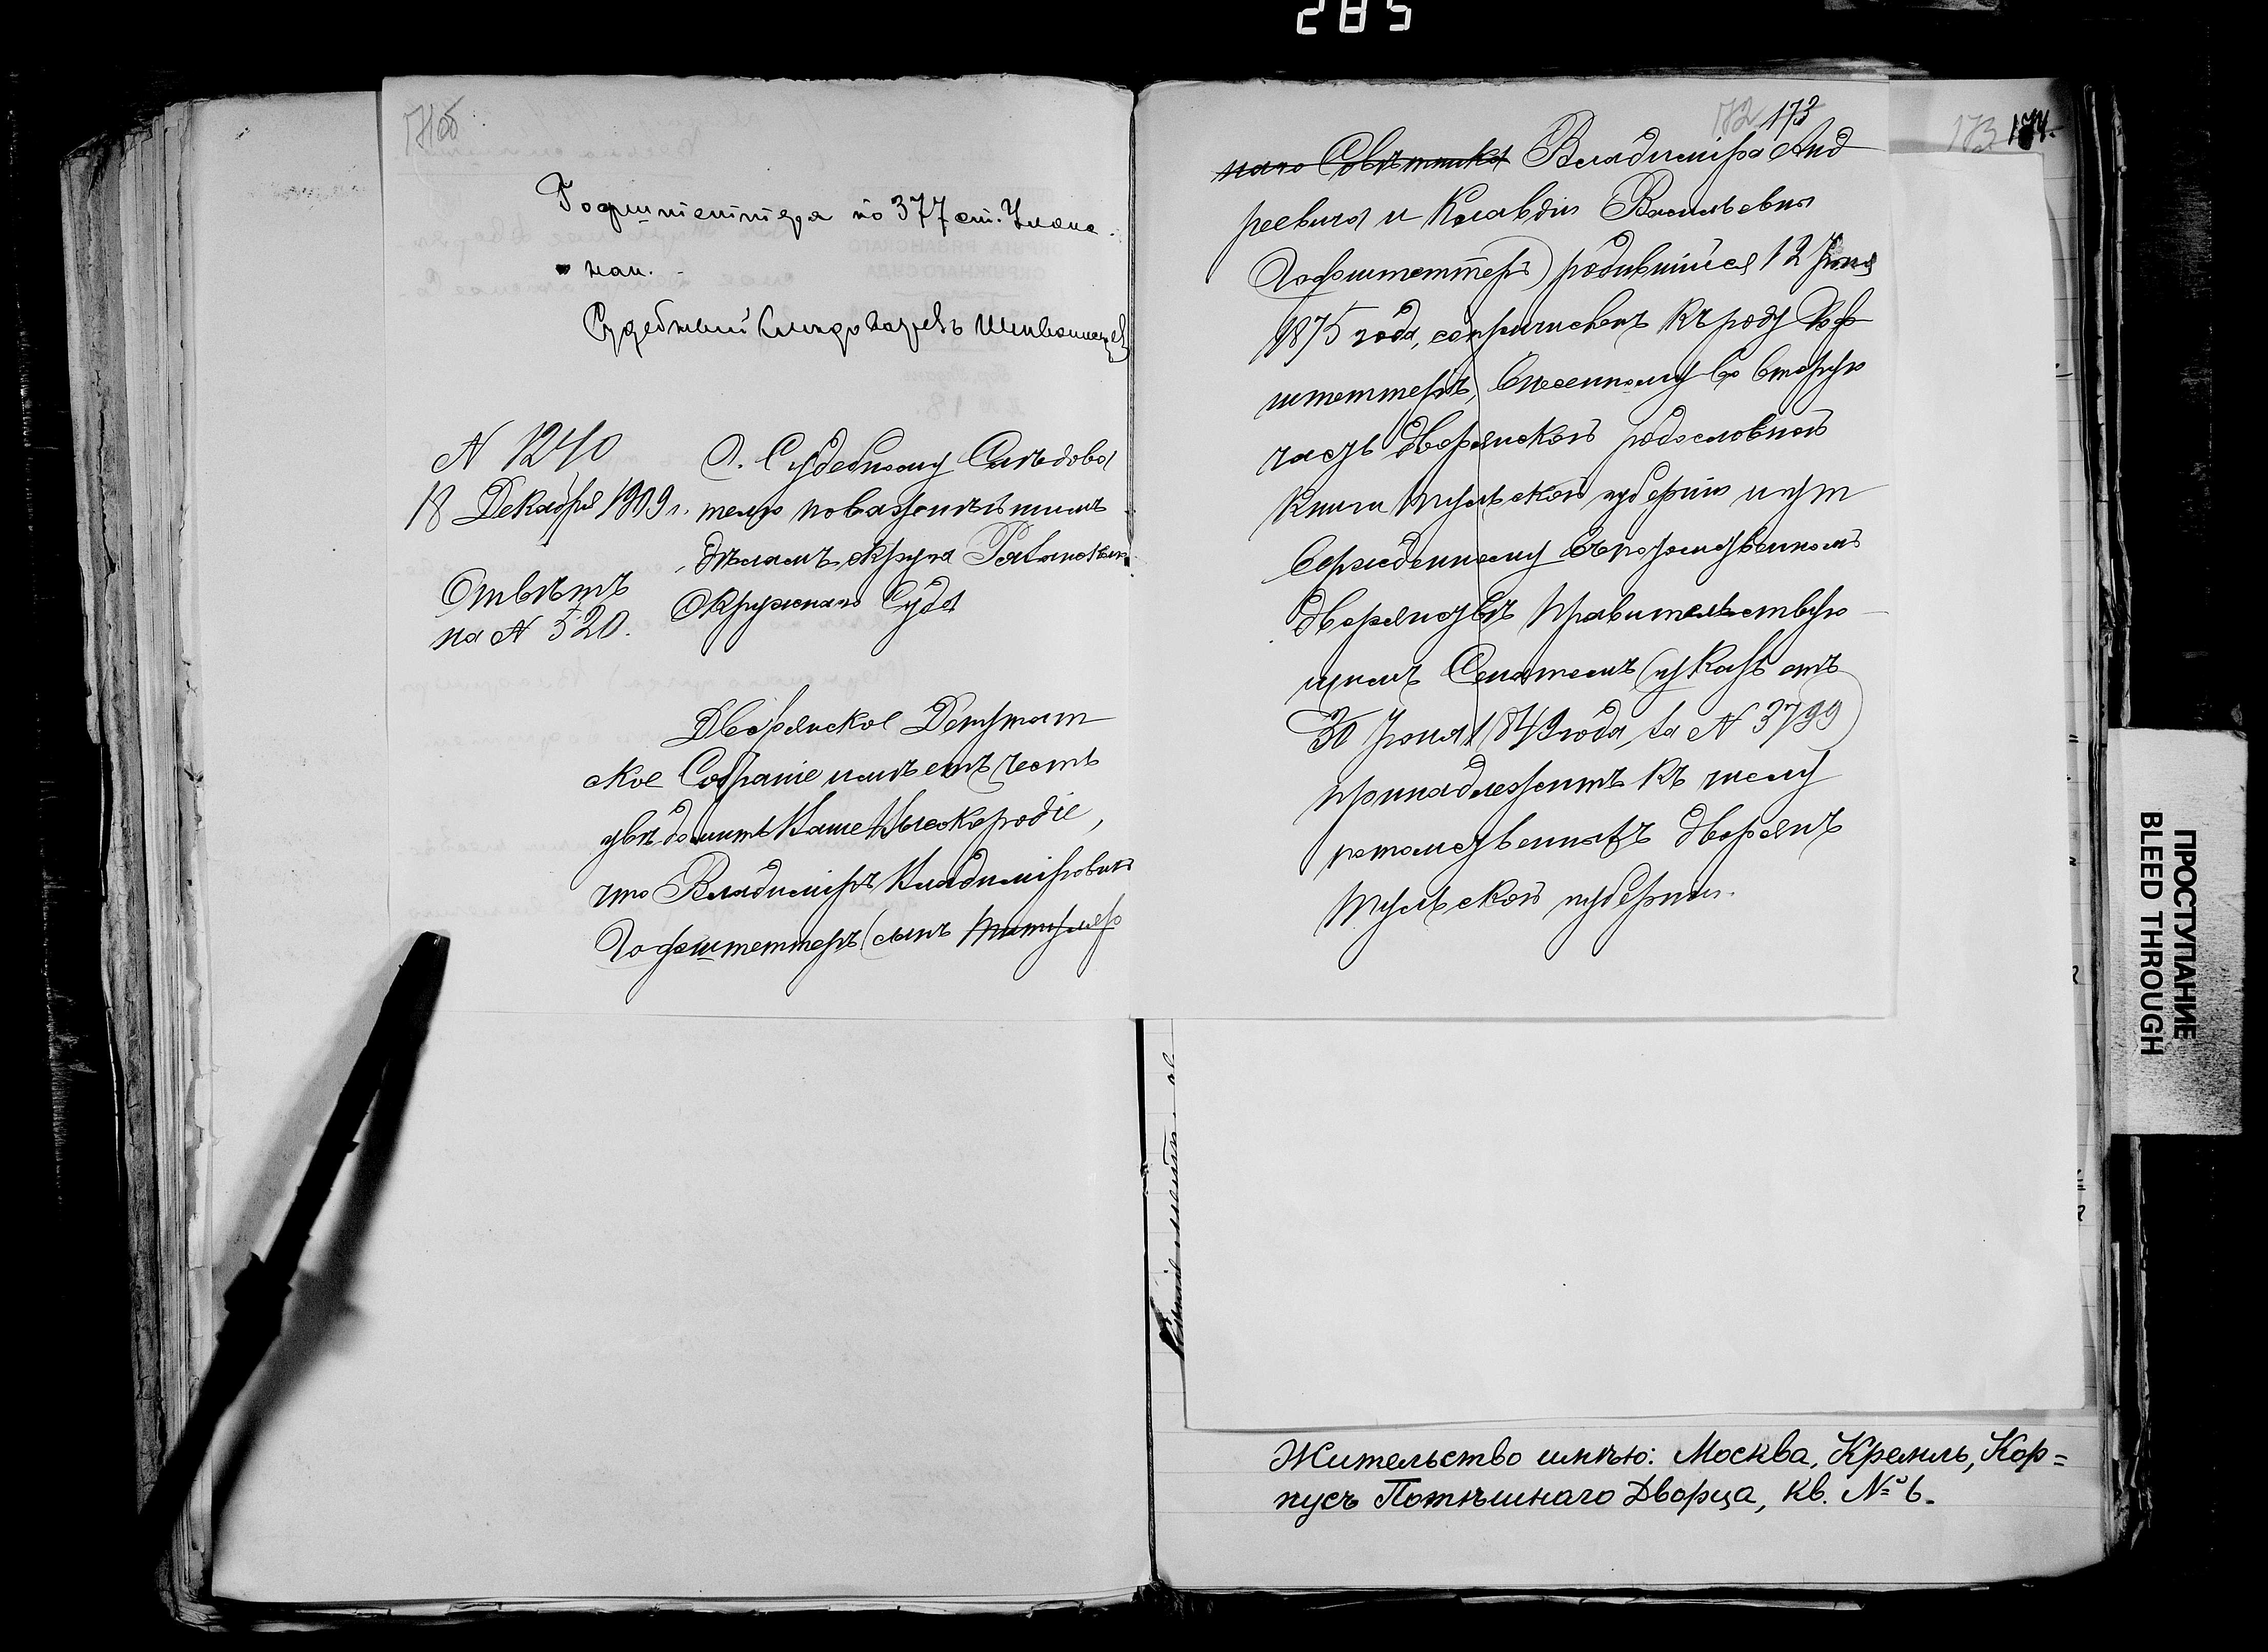 285
Гофштеттера по 377 ст. Улож.
о нак.
Судебный Следователь
N 1240
18 Декабря 1909 г.
Отвѣтъ
на N 520.
Г. Судебному Слѣдова
телю по важнѣйшимъ
дѣламъ округа Рязанскаго
Окружнаго Суда
Дворянское Депутат
ское Собраніе имѣетъ честь
увѣдомить Ваше Высокородіе,
что Владиміръ Владиміровичъ
Гофштеттеръ (сынъ Титуляр
172 173
наго Совѣтника Владиміра Анд
реевича и Клавдіи Васильевны
Гофштеттеръ) родившійся 12 Іюня
1875 года, сопричисленъ къ роду Гоф
штеттеръ, внесенному во вторую
часть дворянской родословной
книги Тульской губерніи и ут
вержденному въ потомственномъ
дворянствѣ Правительствую
щимъ Сенатомъ (указъ отъ
30 Іюня 1849 года, за N 3799)
принадлежитъ къ числу
потомственныхъ дворянъ
Тульской губерніи.
173 174.
Жительство имѣю: Москва, Кремль, Кор=
пусъ Потѣшнаго Дворца, кв. № 6.
ПРОСТУПАНИЕ
BLEED THROUGH